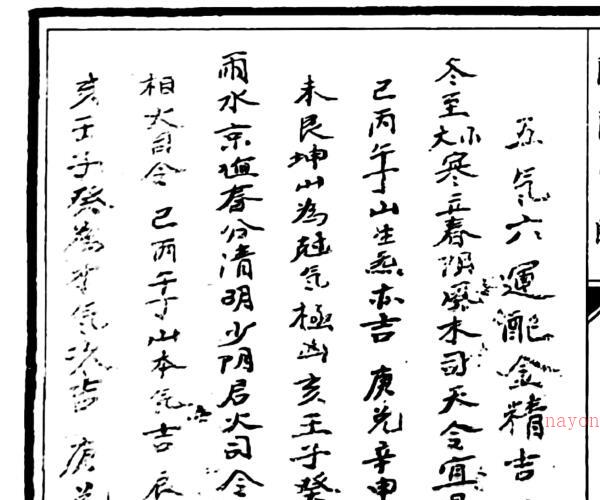 五气六運配金精吉
冬至小大寒立春阴厥木司天令宜
己丙午丁山生炁亦吉 庚兑辛申
未艮坤山為尅气極凶 亥壬子癸
雨水京蛰春分清明少阴君火司令
相火司令 己丙午丁山本气吉 辰
亥壬子癸為才气次吉 庚兑
nayon